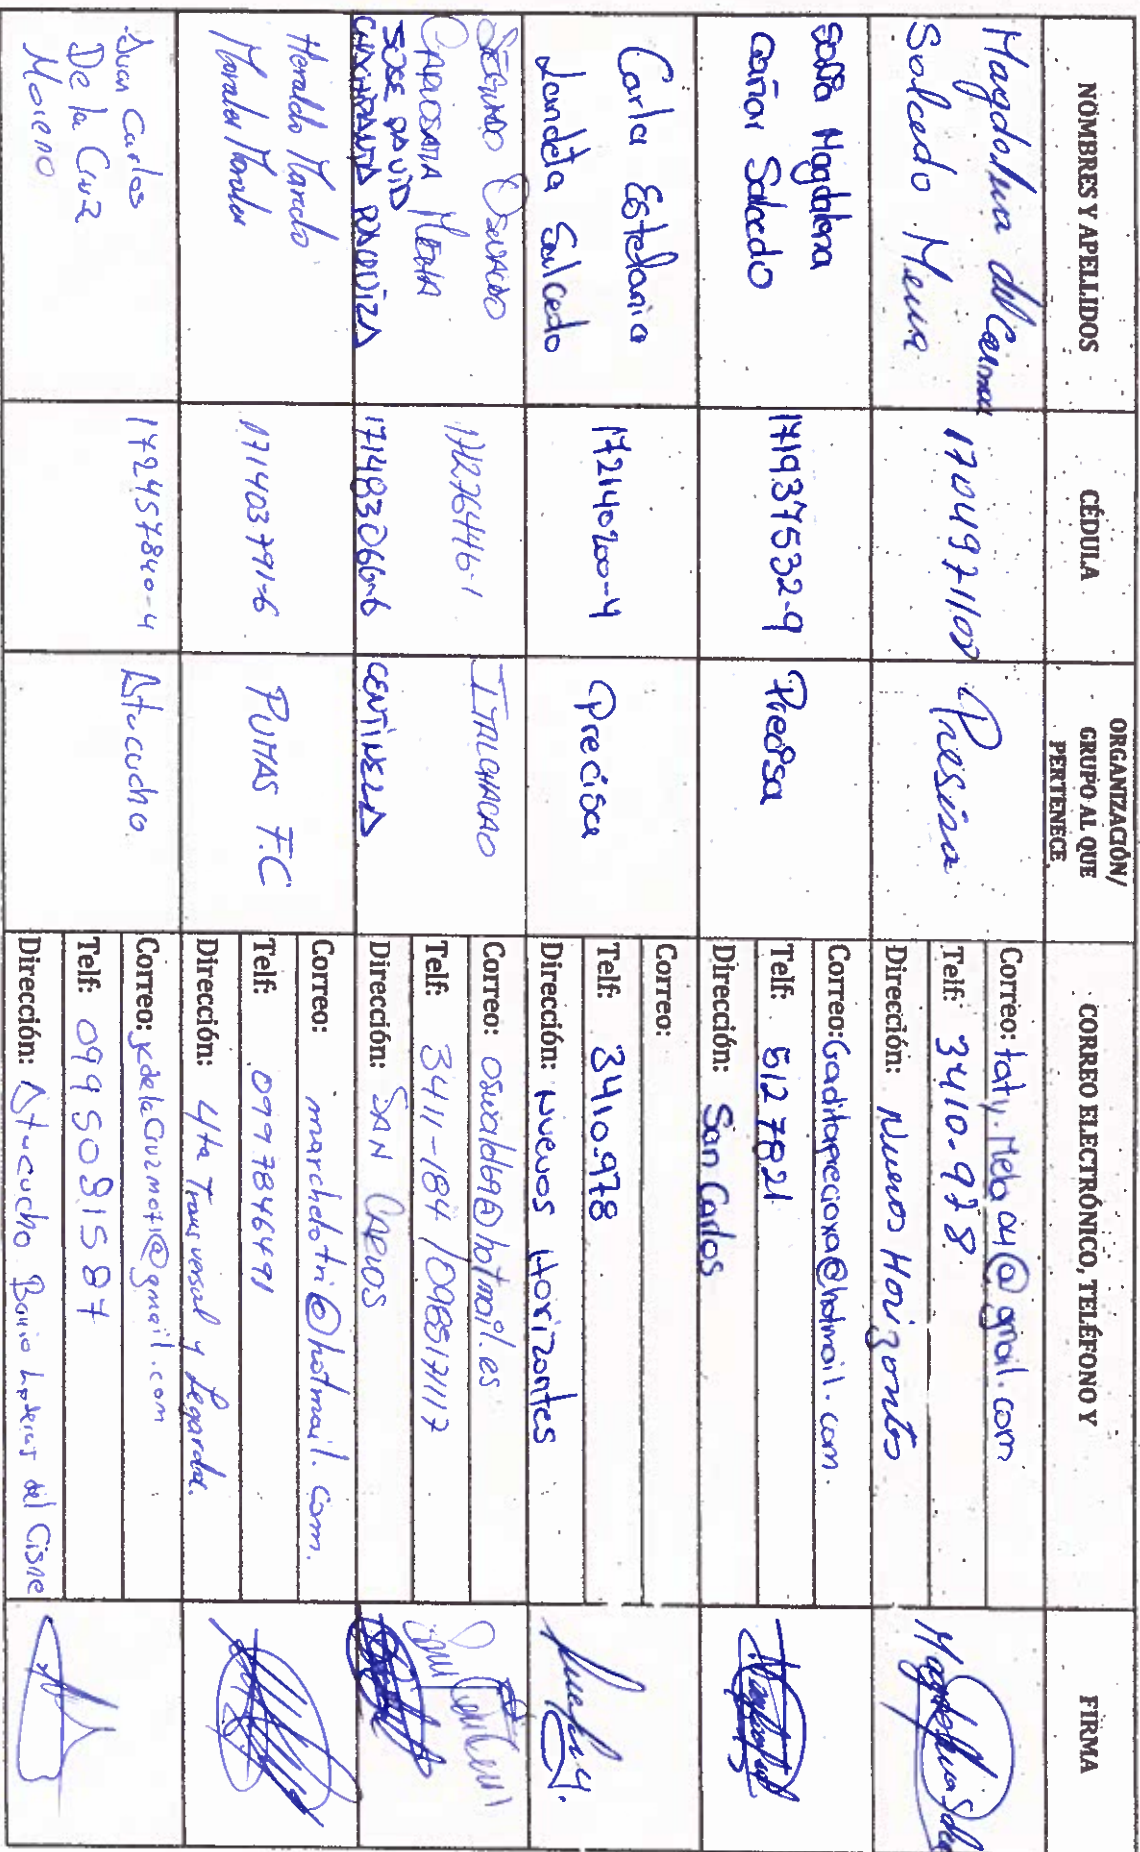 NOMBRES Y APELLIDOS
CÉDULA
ORGANIZACIÓN/
GRUPO AL QUE
PERTENECE
CORREO ELECTRÓNICO, TELÉFONO Y
FIRMA
Magdalena del Carmen
Salcedo Mena
170497110
Presisa
Correo: taty.melo04@gmail.com
Telf: 3410-978
Dirección: Nuevos Horizontes
Sofia Magdalena
Cañar Salcedo
171937532-9
Precisa
Correo: Gaditaprecioxa@hotmail.com.
Telf: 5127821
Dirección: San Carlos
Carla Estefania
Landeta Salcedo
172140200-4
Precisa
Correo:
Telf: 3410978
Dirección: Nuevos Horizontes
Segundo Oswaldo
171276446-1
ITALCHACAO
JOSE DAVID
171483066-6
CENTINELA
Correo: oswaldo69@hotmail.es
Telf: 3411-184 / 0985171117
Dirección: SAN CARLOS
Heraldo Marcelo
Morales Morales
171403791-6
PUMAS F.C
Correo: marchelotri@hotmail.com.
Telf: 0997846491
Dirección: 4ta Transversal y Legarda.
Juan Carlos
De la Cruz
Moreno
172457840-4
Atucucho
Correo: @gmail.com
Telf: 0995091587
Dirección: Atucucho Barrio del Cisne